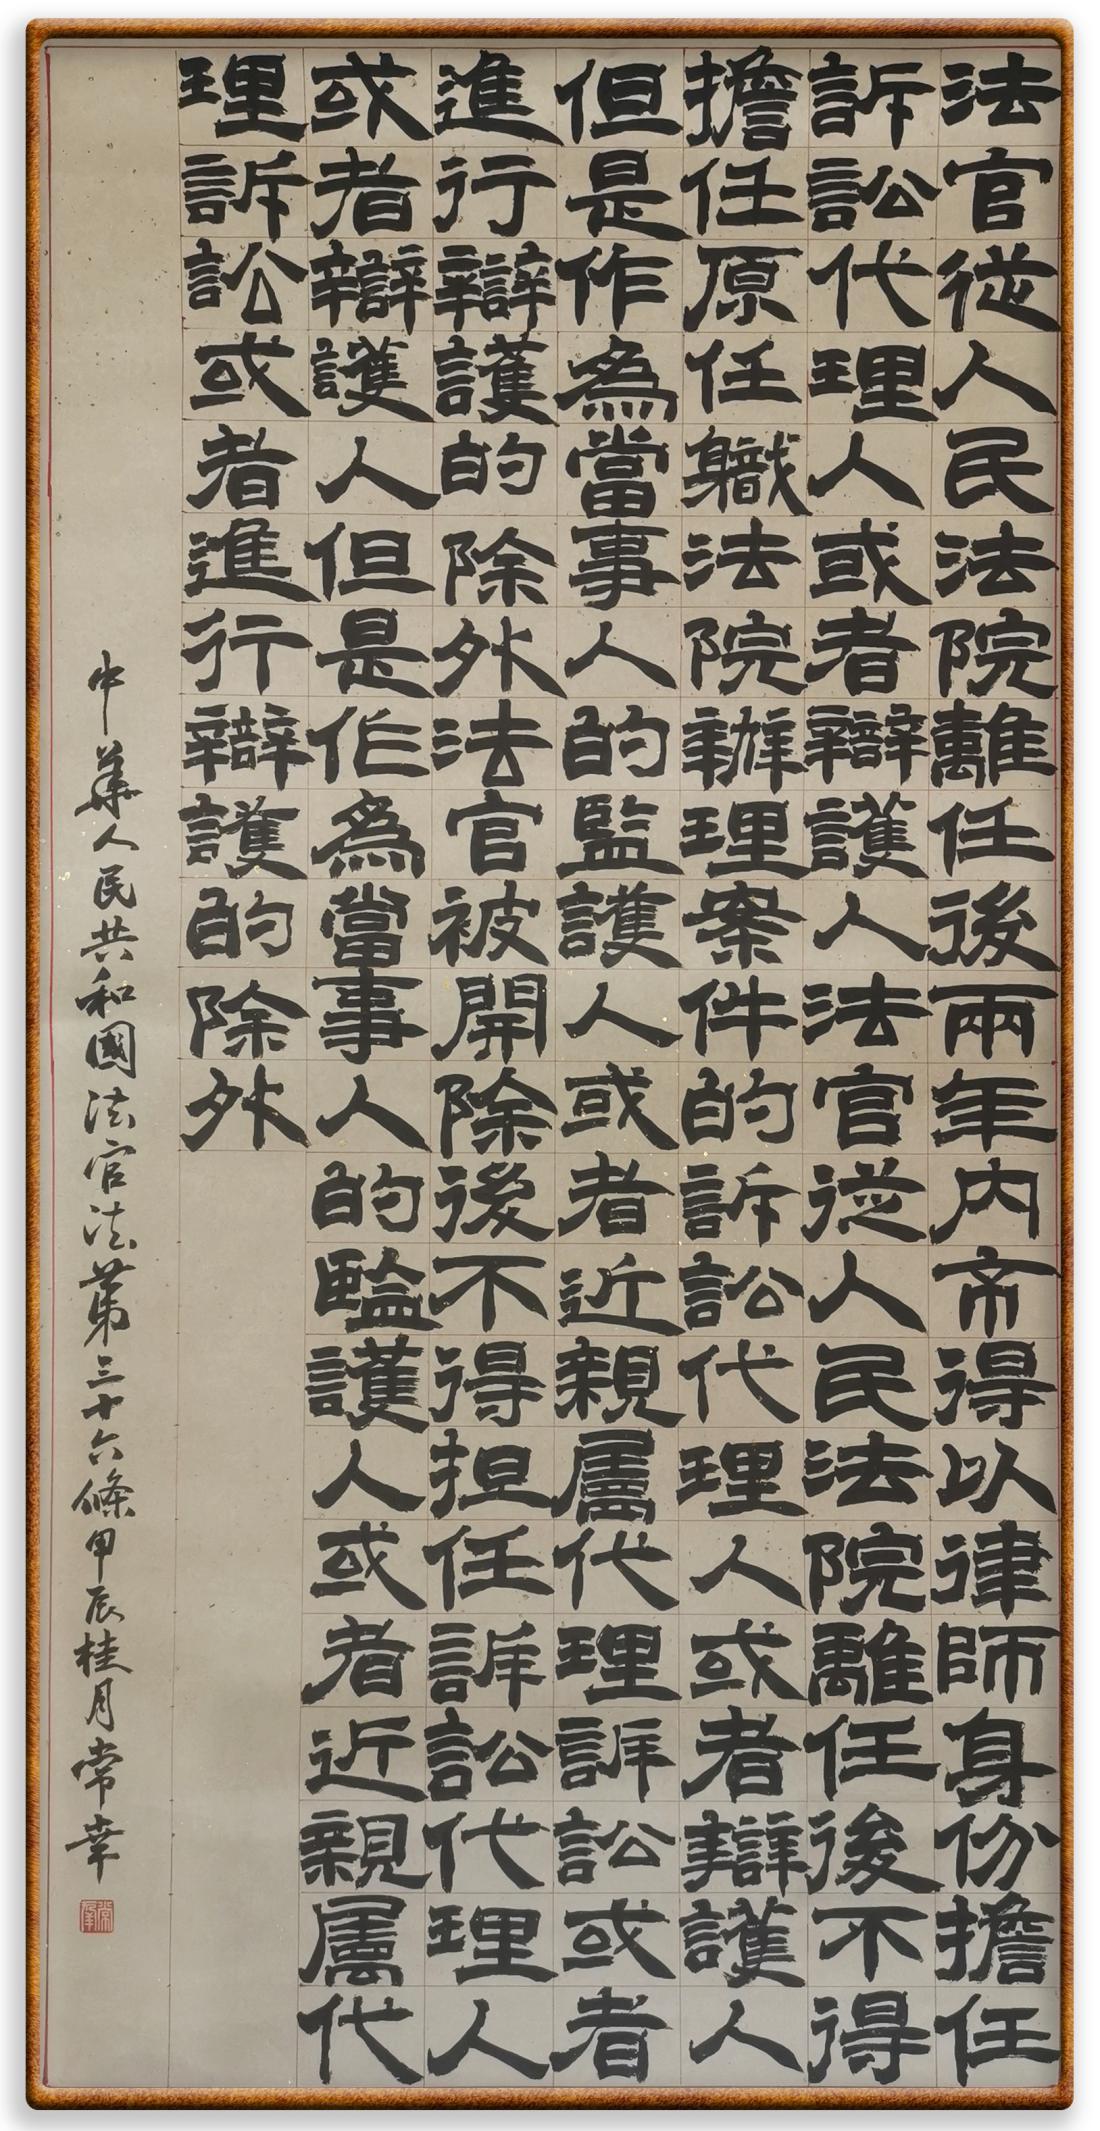 法官從人民法院離任後兩年内不得以律師身份擔任
訴訟代理人或者辯護人法官從人民法院離任後不得
擔任原任職法院辦理案件的訴訟代理人或者辯護人
但是作為當事人的監護人或者近親屬代理訴訟或者
進行辯護的除外法官被開除後不得担任訴訟代理人
或者辯護人但是作為當事人的監護人或者近親屬代
理訴訟或者進行辯護的除外
中華人民共和國法官法第三十六條甲辰桂月常幸